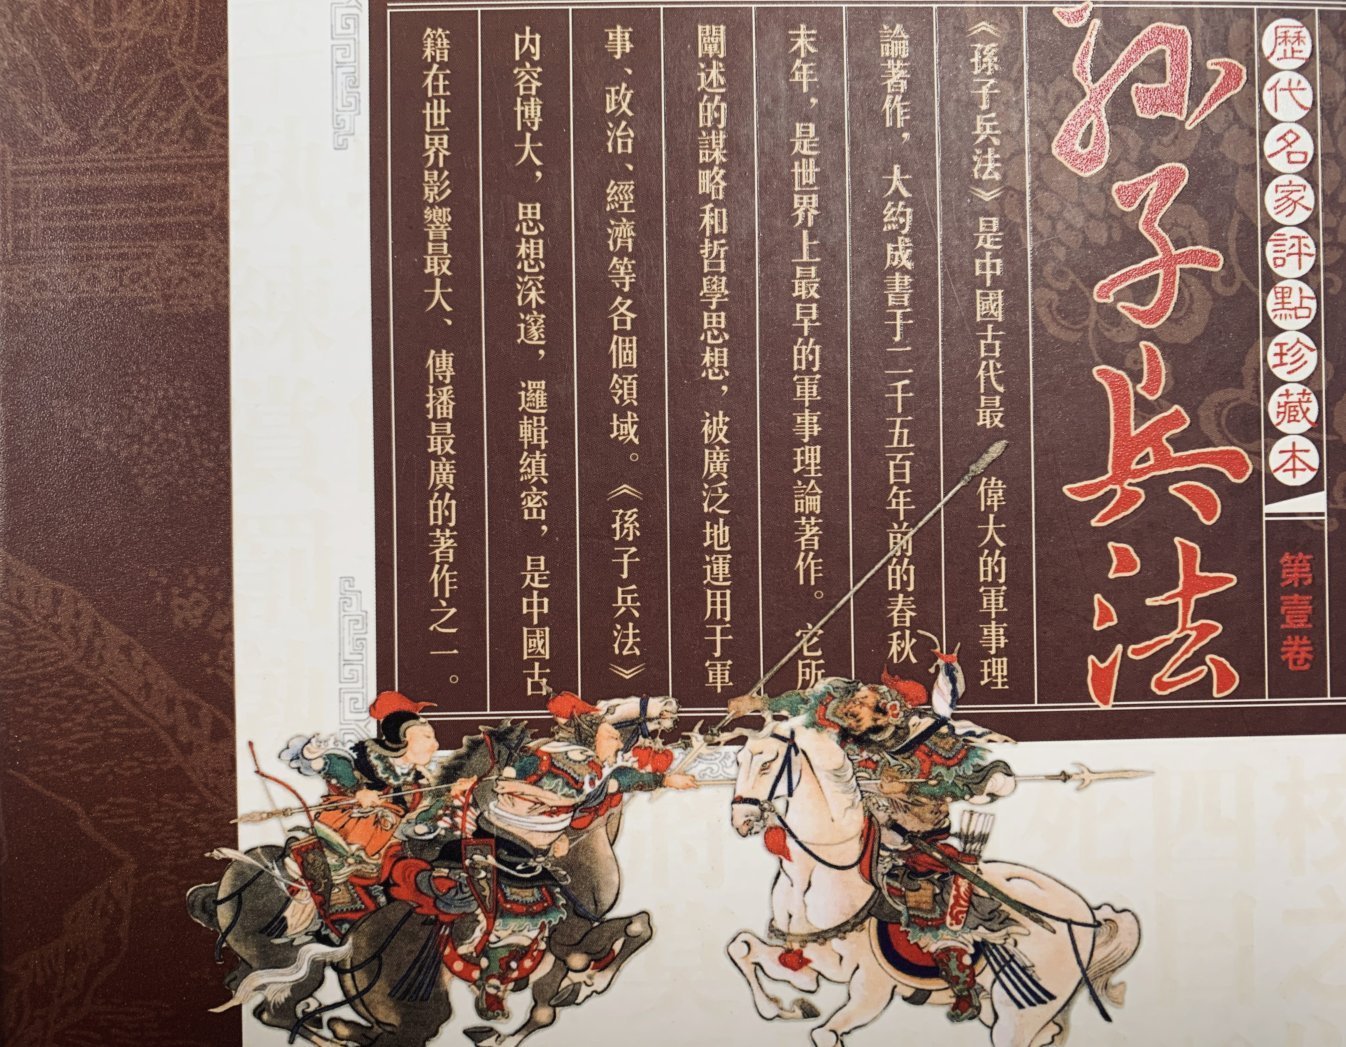 歷代名家評點珍藏本
第壹卷
孫子兵法
《孫子兵法》是中國古代最偉大的軍事理
論著作，大約成書于二千五百年前的春秋
末年，是世界上最早的軍事理論著作。它所
闡述的謀略和哲學思想，被廣泛地運用于軍
事、政治、經濟等各個領域。《孫子兵法》
内容博大，思想深邃，邏輯縝密，是中國古
籍在世界影響最大、傳播最廣的著作之一。